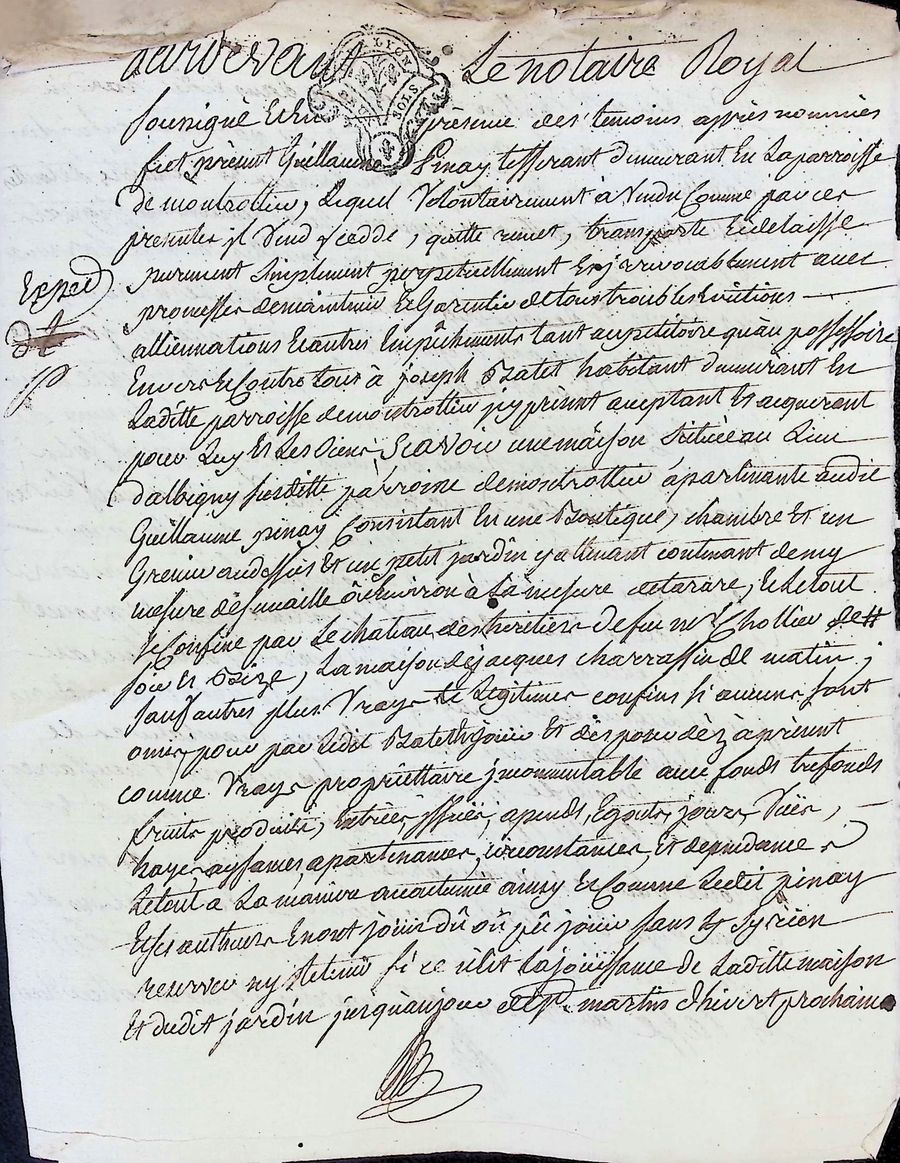 Pardevant Le notaire Royal
LYON
DEUX SOLS
soussigné Et En présence des témoins après nommés
fut présent Guillaume Pinay tisserant demeurant En La parroisse
de montrottier, Lequel Volontairement à Vendu Comme par ces
presentes jl Vend, cedde, quitte remet, transporte Et delaisse
purement simplement perpetuellement Et jrrevocablement avec
Exped
promesse de maintenir Et Garentir de tous troubles Evictions
alliennations Et autres Empêchements tant au petitoire qu'au possessoire
Envers Et Contre tous à joseph Batet habitant demeurant En
Laditte parroisse de montrottier jcy présent aceptant Et acquerant
pour Luy Et Les siens Scavoir une maison scituée au Lieu
d'albigny susditte parroisse de montrottier apartenante audit
Guillaume pinay Consistant En une Boutique, chambre Et un
Grenier au dessus Et un petit jardin y attenant contenant demy
mesure de semaille ôu Environ à La mesure de tarare, Et le tout
se Confine par Le chateau des heritiers de feu mr. Chollier de
soir et Bize, La maison de jacques charrassin de matin,
sauf autres plus Vrays Et Legitimes confins si aucuns sont
omis, pour par Ledit Batet En jouir Et disposer dès à présent
comme Vray propriettaire jncommutable avec fonds trefonds
fruits produits, entrées, jssuës, apends, Egouts, jours, Vuës,
hayes, aysances, apartenances, circonstances, et dependances
Le tout a La maniere accoutumée ainsy Et Comme Ledit pinay
Et ses autheurs En ont joui dû ou pû jouir sans sy Rien
reserver ny retenir si ce n'est La jouissance de Laditte maison
Et dudit jardin jusqu'au jour de St. martin d'hivert prochaine